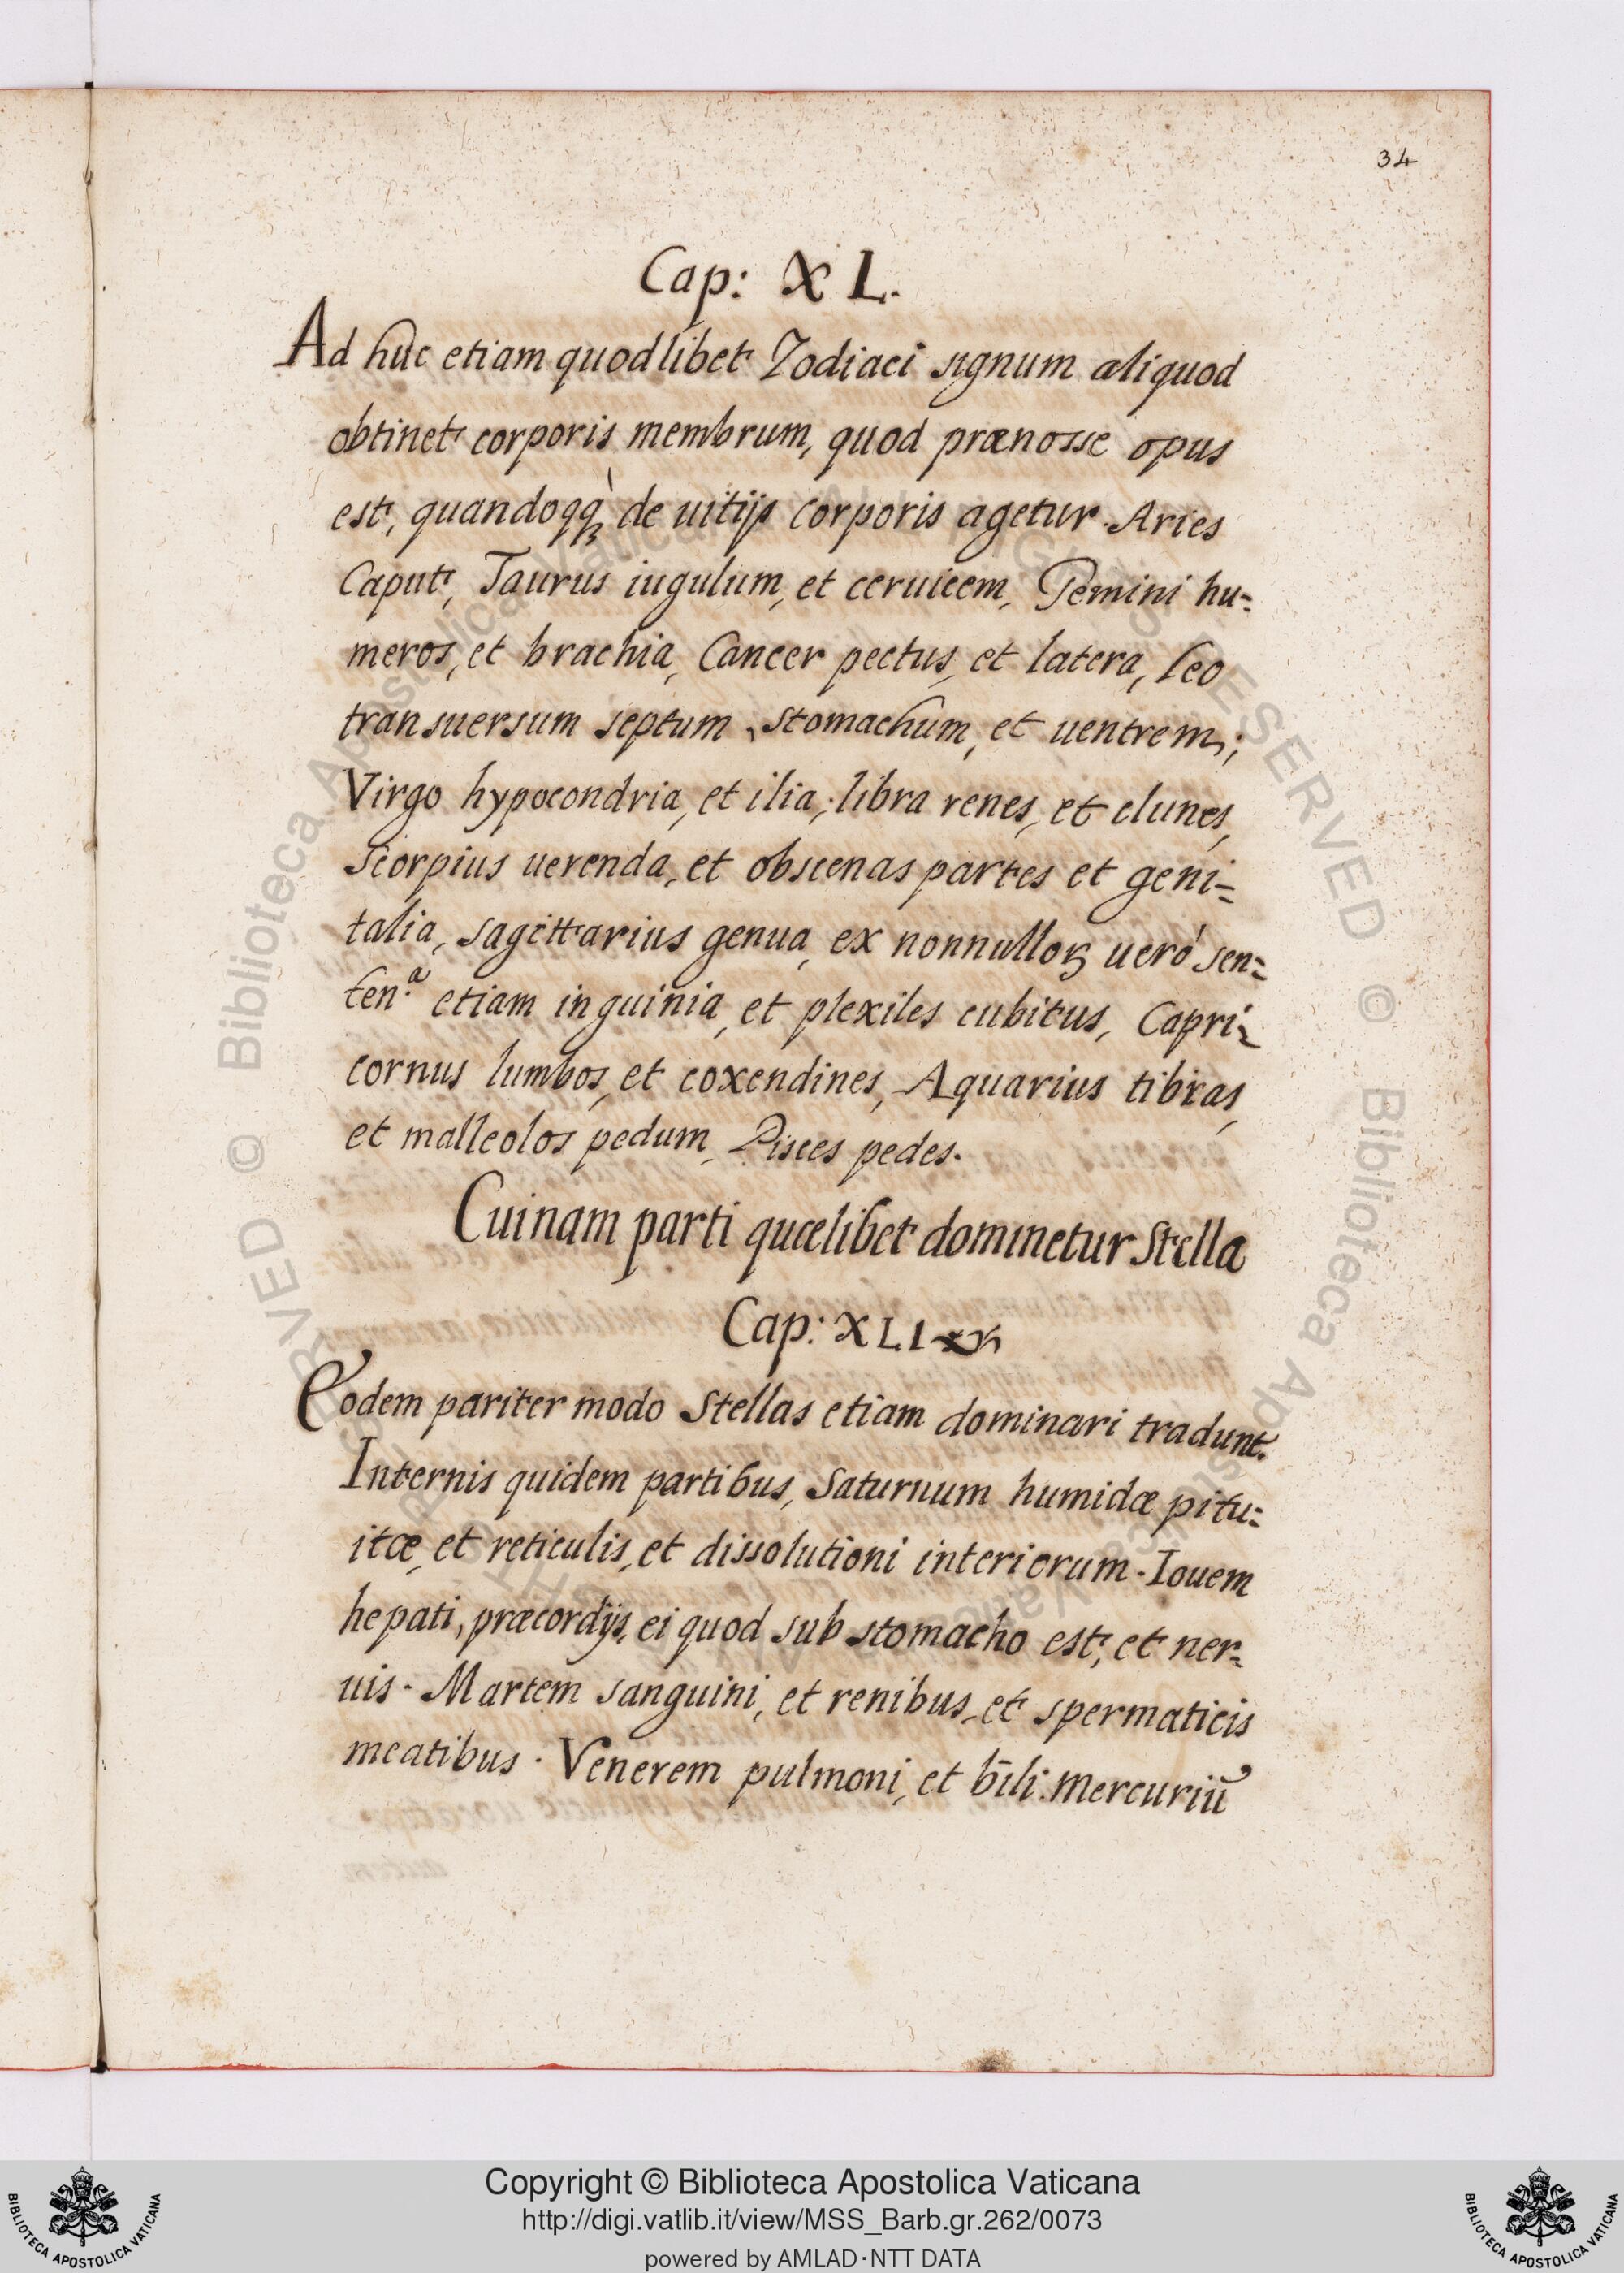 34
Cap: XL.
Ad hûc etiam quodlibet Zodiaci signum aliquod
obtinet corporis membrum, quod prænosse opus
est, quandoqq̀ de uitijs corporis agetur. Aries
Caput, Taurus iugulum, et ceruicem, Gemini hu=
meros, et brachia, Cancer pectus, et latera, Leo
transuersum septum, stomachum, et uentrem;
Virgo hypocondria, et ilia; libra renes, et clunes,
Scorpius uerenda, et obscenas partes et geni=
talia, sagittarius genua, ex nonnulloꝝ ueró sen=
ten.ª etiam inguinia, et plexiles cubitus, Capri=
cornus lumbos, et coxendines, Aquarius tibias,
et malleolos pedum, Pisces pedes.
Cuinam parti quælibet dominetur Stella
Cap: XLI
Eodem pariter modo Stellas etiam dominari tradunt.
Internis quidem partibus, Saturnum humidæ pitu=
itæ, et reticulis, et dissolutioni interiorum. Iouem
hepati, præcordijs, ei quod sub stomacho est, et ner=
uis. Martem sanguini, et renibus, et spermaticis
meatibus. Venerem pulmoni, et bili. Mercuriū
Copyright © Biblioteca Apostolica Vaticana
http://digi.vatlib.it/view/MSS_Barb.gr.262/0073
powered by AMLAD·NTT DATA
BIBLIOTECA APOSTOLICA VATICANA
BIBLIOTECA APOSTOLICA VATICANA